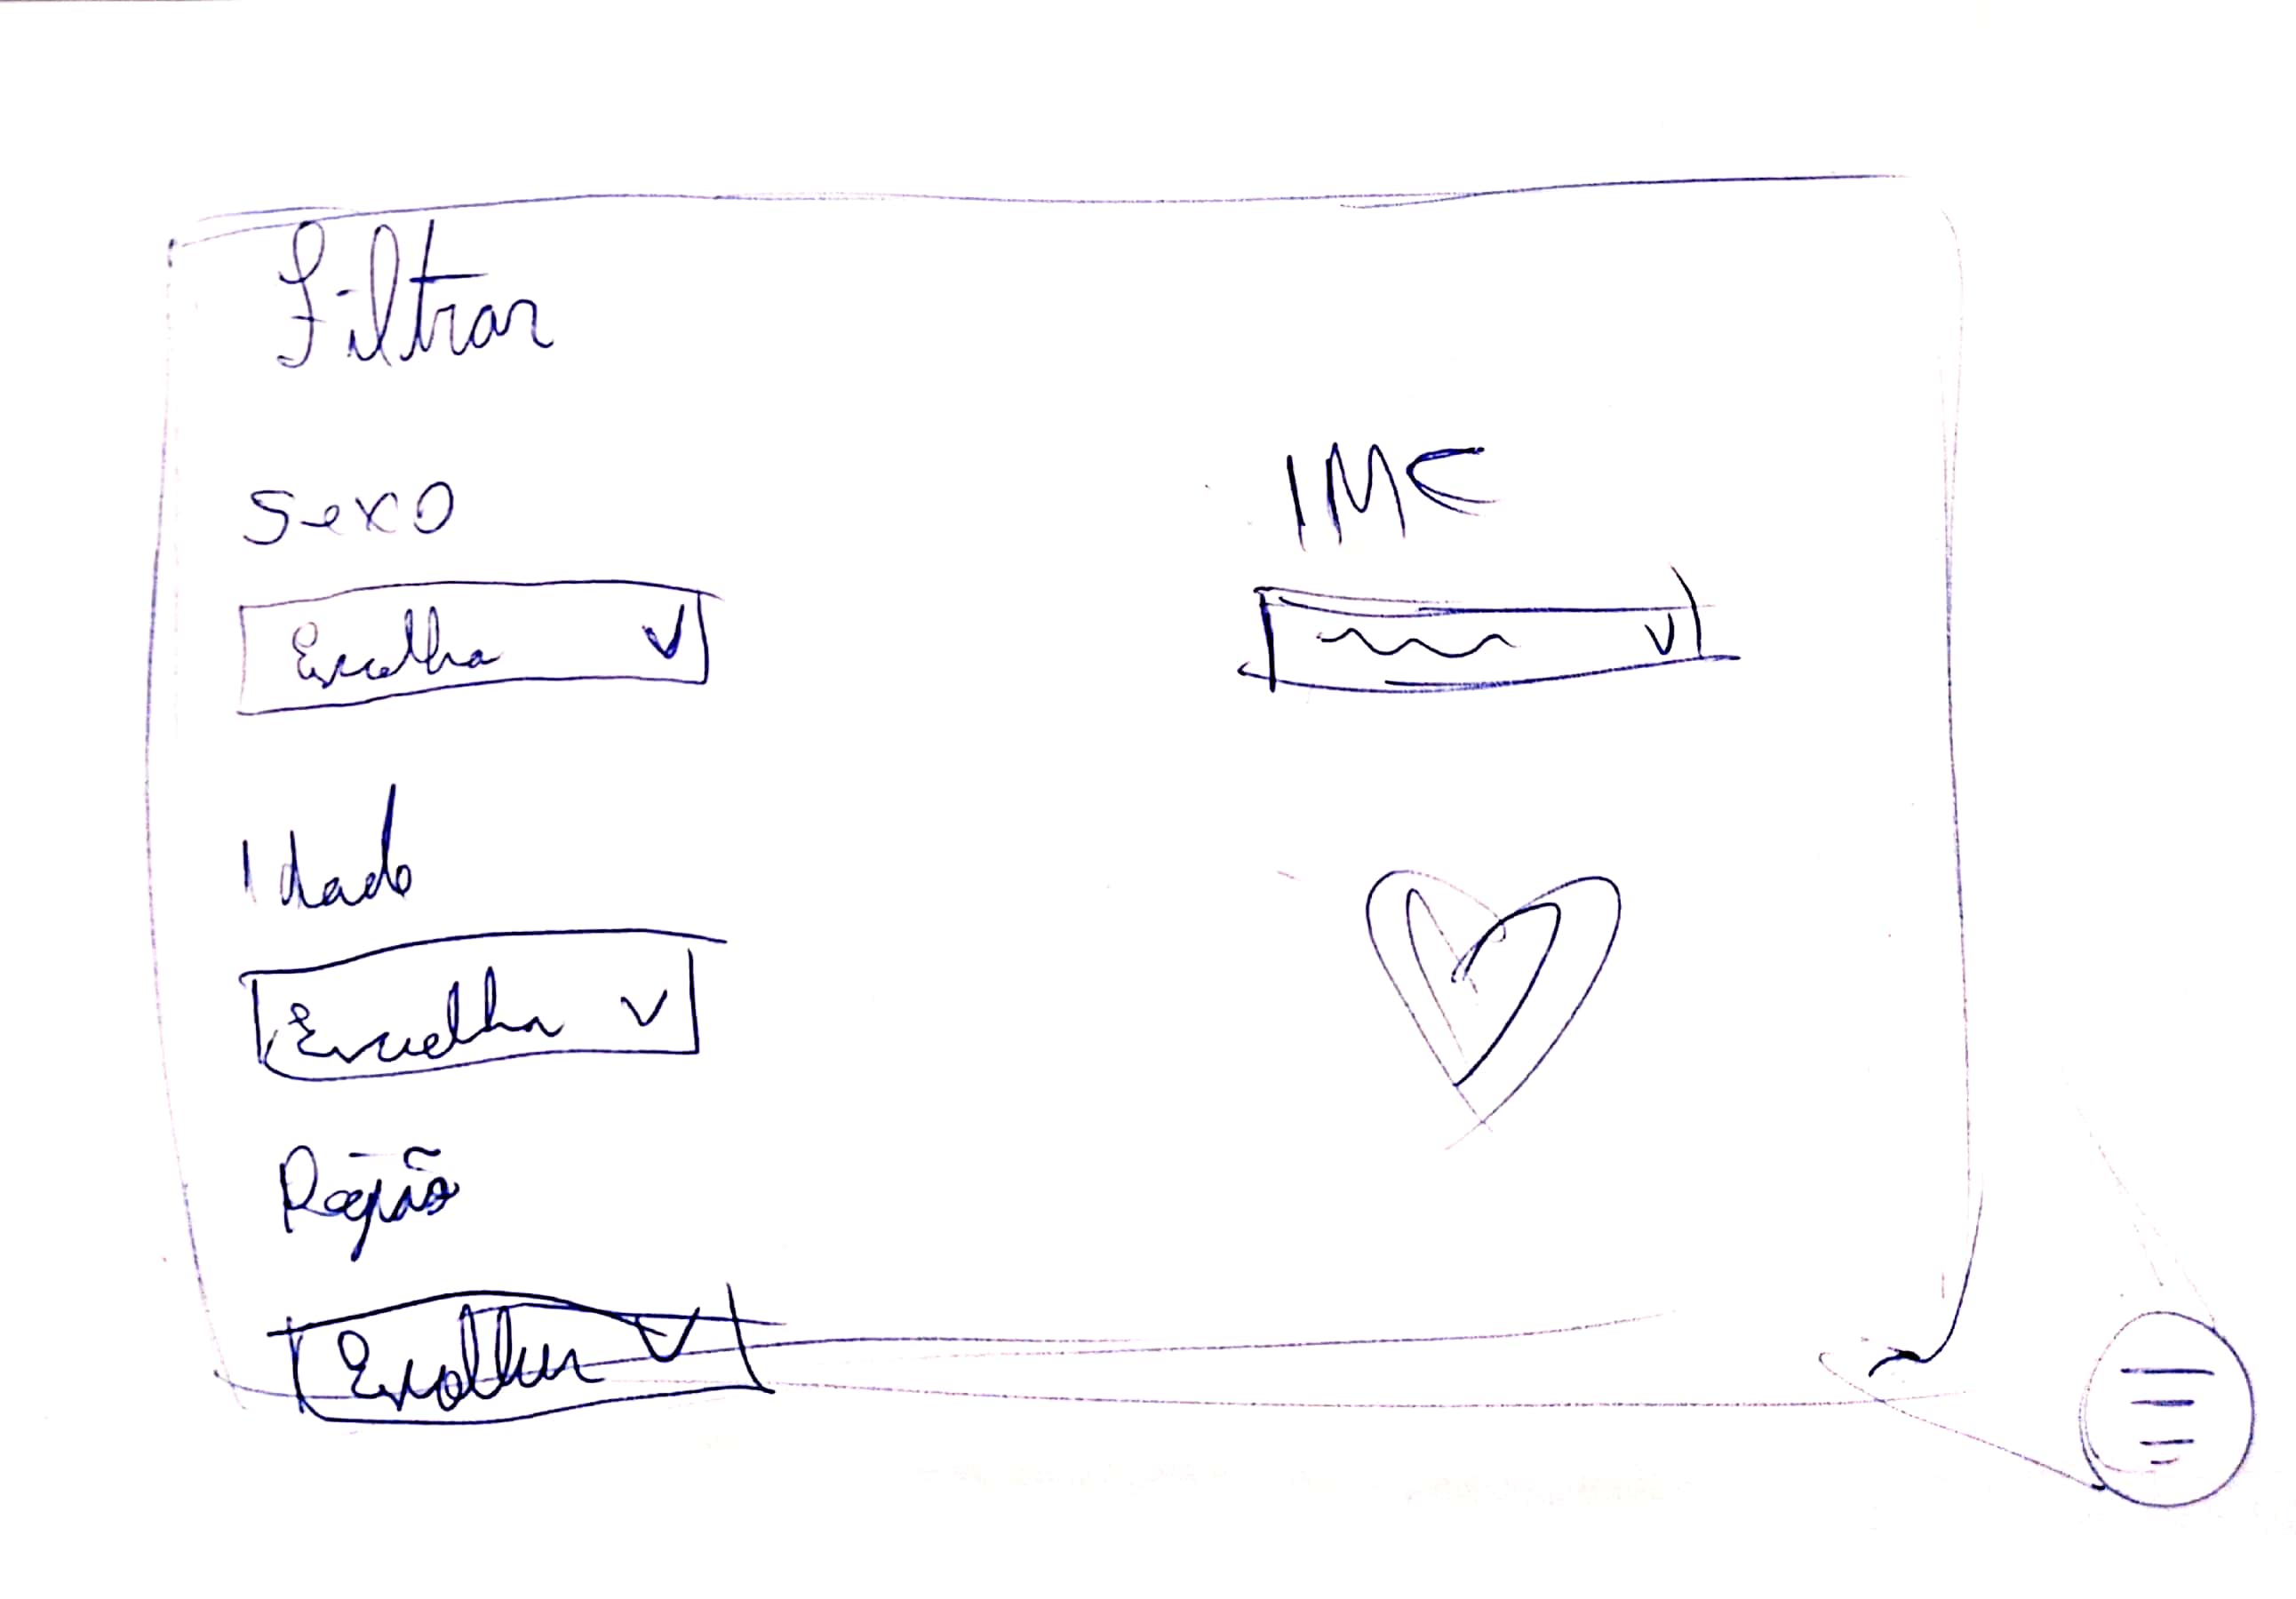 Filtrar
Sexo
Escolha
Idade
Escolha
Região
Escolha
IMC